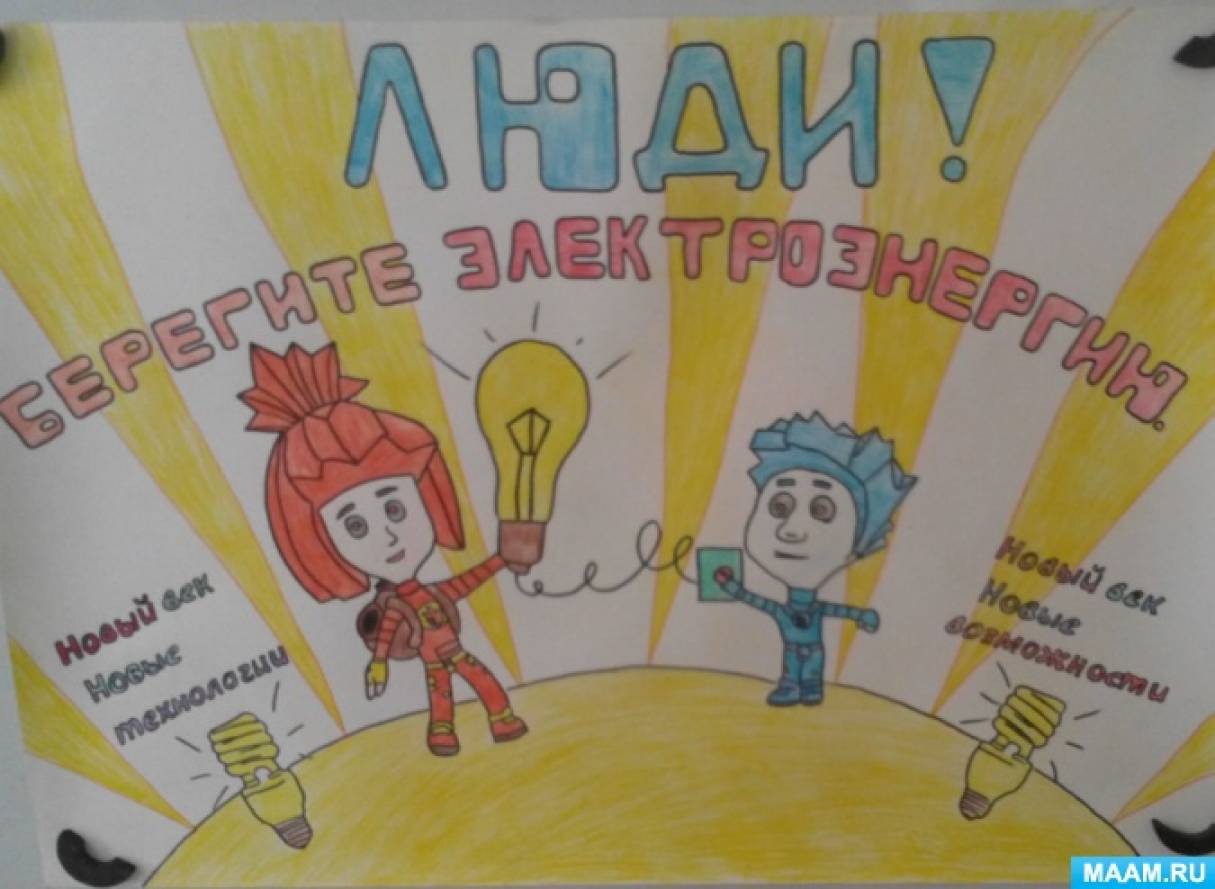 ЛЮДИ!
БЕРЕГИТЕ ЭЛЕКТРОЭНЕРГИЮ.
Новый век
Новые
технологии
Новый век
Новые
возможности
MAAM.RU